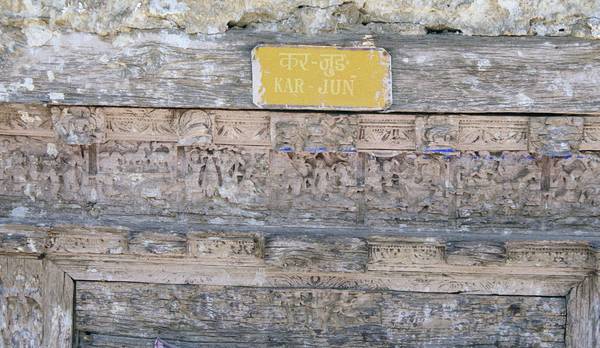 कर-जुङ
KAR - JUN